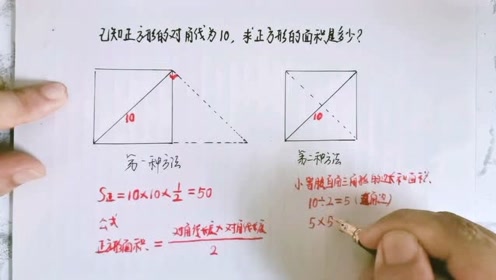 已知正方形的对角线为10，求正方形的面积是多少？
10
10
第一种方法
第二种方法
S正=10×10×1/2=50
公式
正方形面积=对角线长度×对角线长度/2
小等腰直角三角形的
面积.
10÷2=5（直角边）
5×5